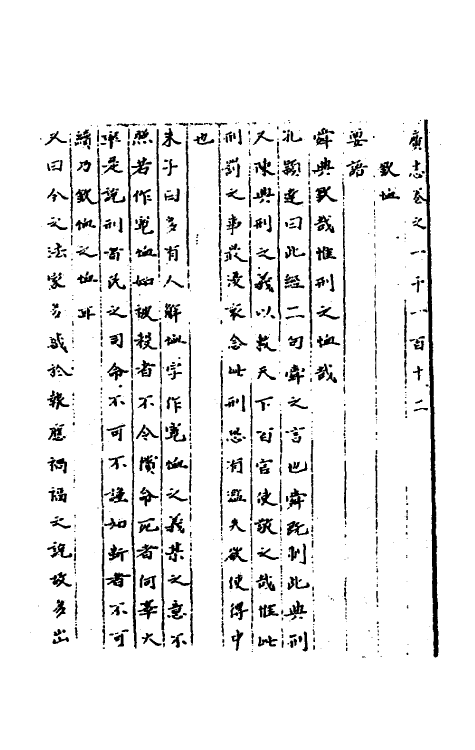 廣志卷之一千一百十二
欽恤
要語
舜典欽哉惟刑之恤哉
孔穎達曰此經二句舜之言也舜既制此典刑
又陳典刑之義以敕天下百官使敬之哉惟此
刑罰之事最湏憂念此刑恐有濫失欲使得中
也
朱子曰多有人解恤字作寬恤之義某之意不
然若作寬恤如被殺者不令償命死者何辜大
率是說刑者民之司命不可不謹如斷者不可
續乃欽恤之恤耳
又曰今之法家多惑於報應禍福之說故多出